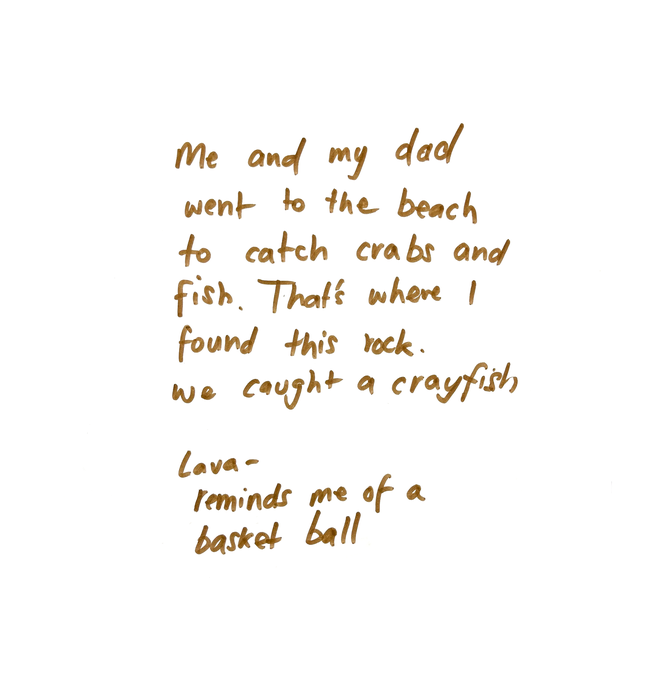 Me and my dad
went to the beach
to catch crabs and
fish. That's where I
found this rock.
we caught a crayfish
Lava-
reminds me of a
basket ball